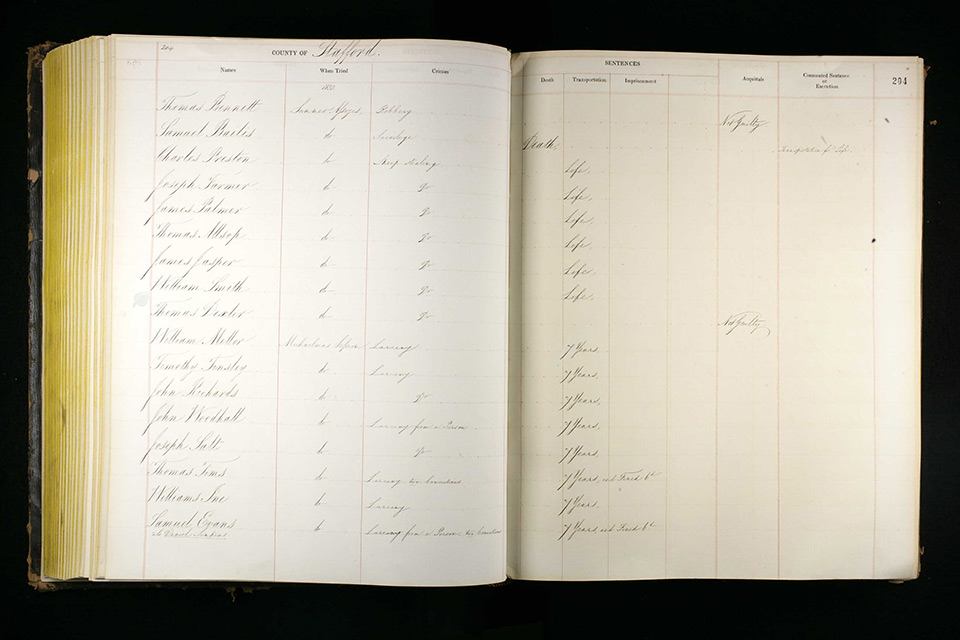 204
COUNTY OF Stafford.
Names When Tried Crimes
1832
Thomas Bennett Summer Assizes, Robbery
Samuel Bailis do Sacrilege
Charles Preston do Sheep stealing
Joseph Farmer do Do
James Palmer do Do
Thomas Allsop do Do
James Jasper do Do
William Smith do Do
Thomas Dexter do Do
William Meller Michaelmas Larceny
Timothy Tinsley do Larceny
John Richards do Do
John Woodhall do Larceny from a Person
Joseph Salt do Do
Thomas Tims do Larceny two Convictions
Williams do Larceny
Samuel Evans do Larceny from a Person two Convictions
SENTENCES
Death Transportation Imprisonment Acquittals Commuted Sentence or Execution 204
Not Guilty
Death Transportation for Life
Life.
Life,
Life,
Life,
Life.
Life.
Not Guilty
7 Years.
7 Years.
7 Years,
7 Years.
7 Years.
7 Years, and Fined
7 Years.
7 Years, and Fined